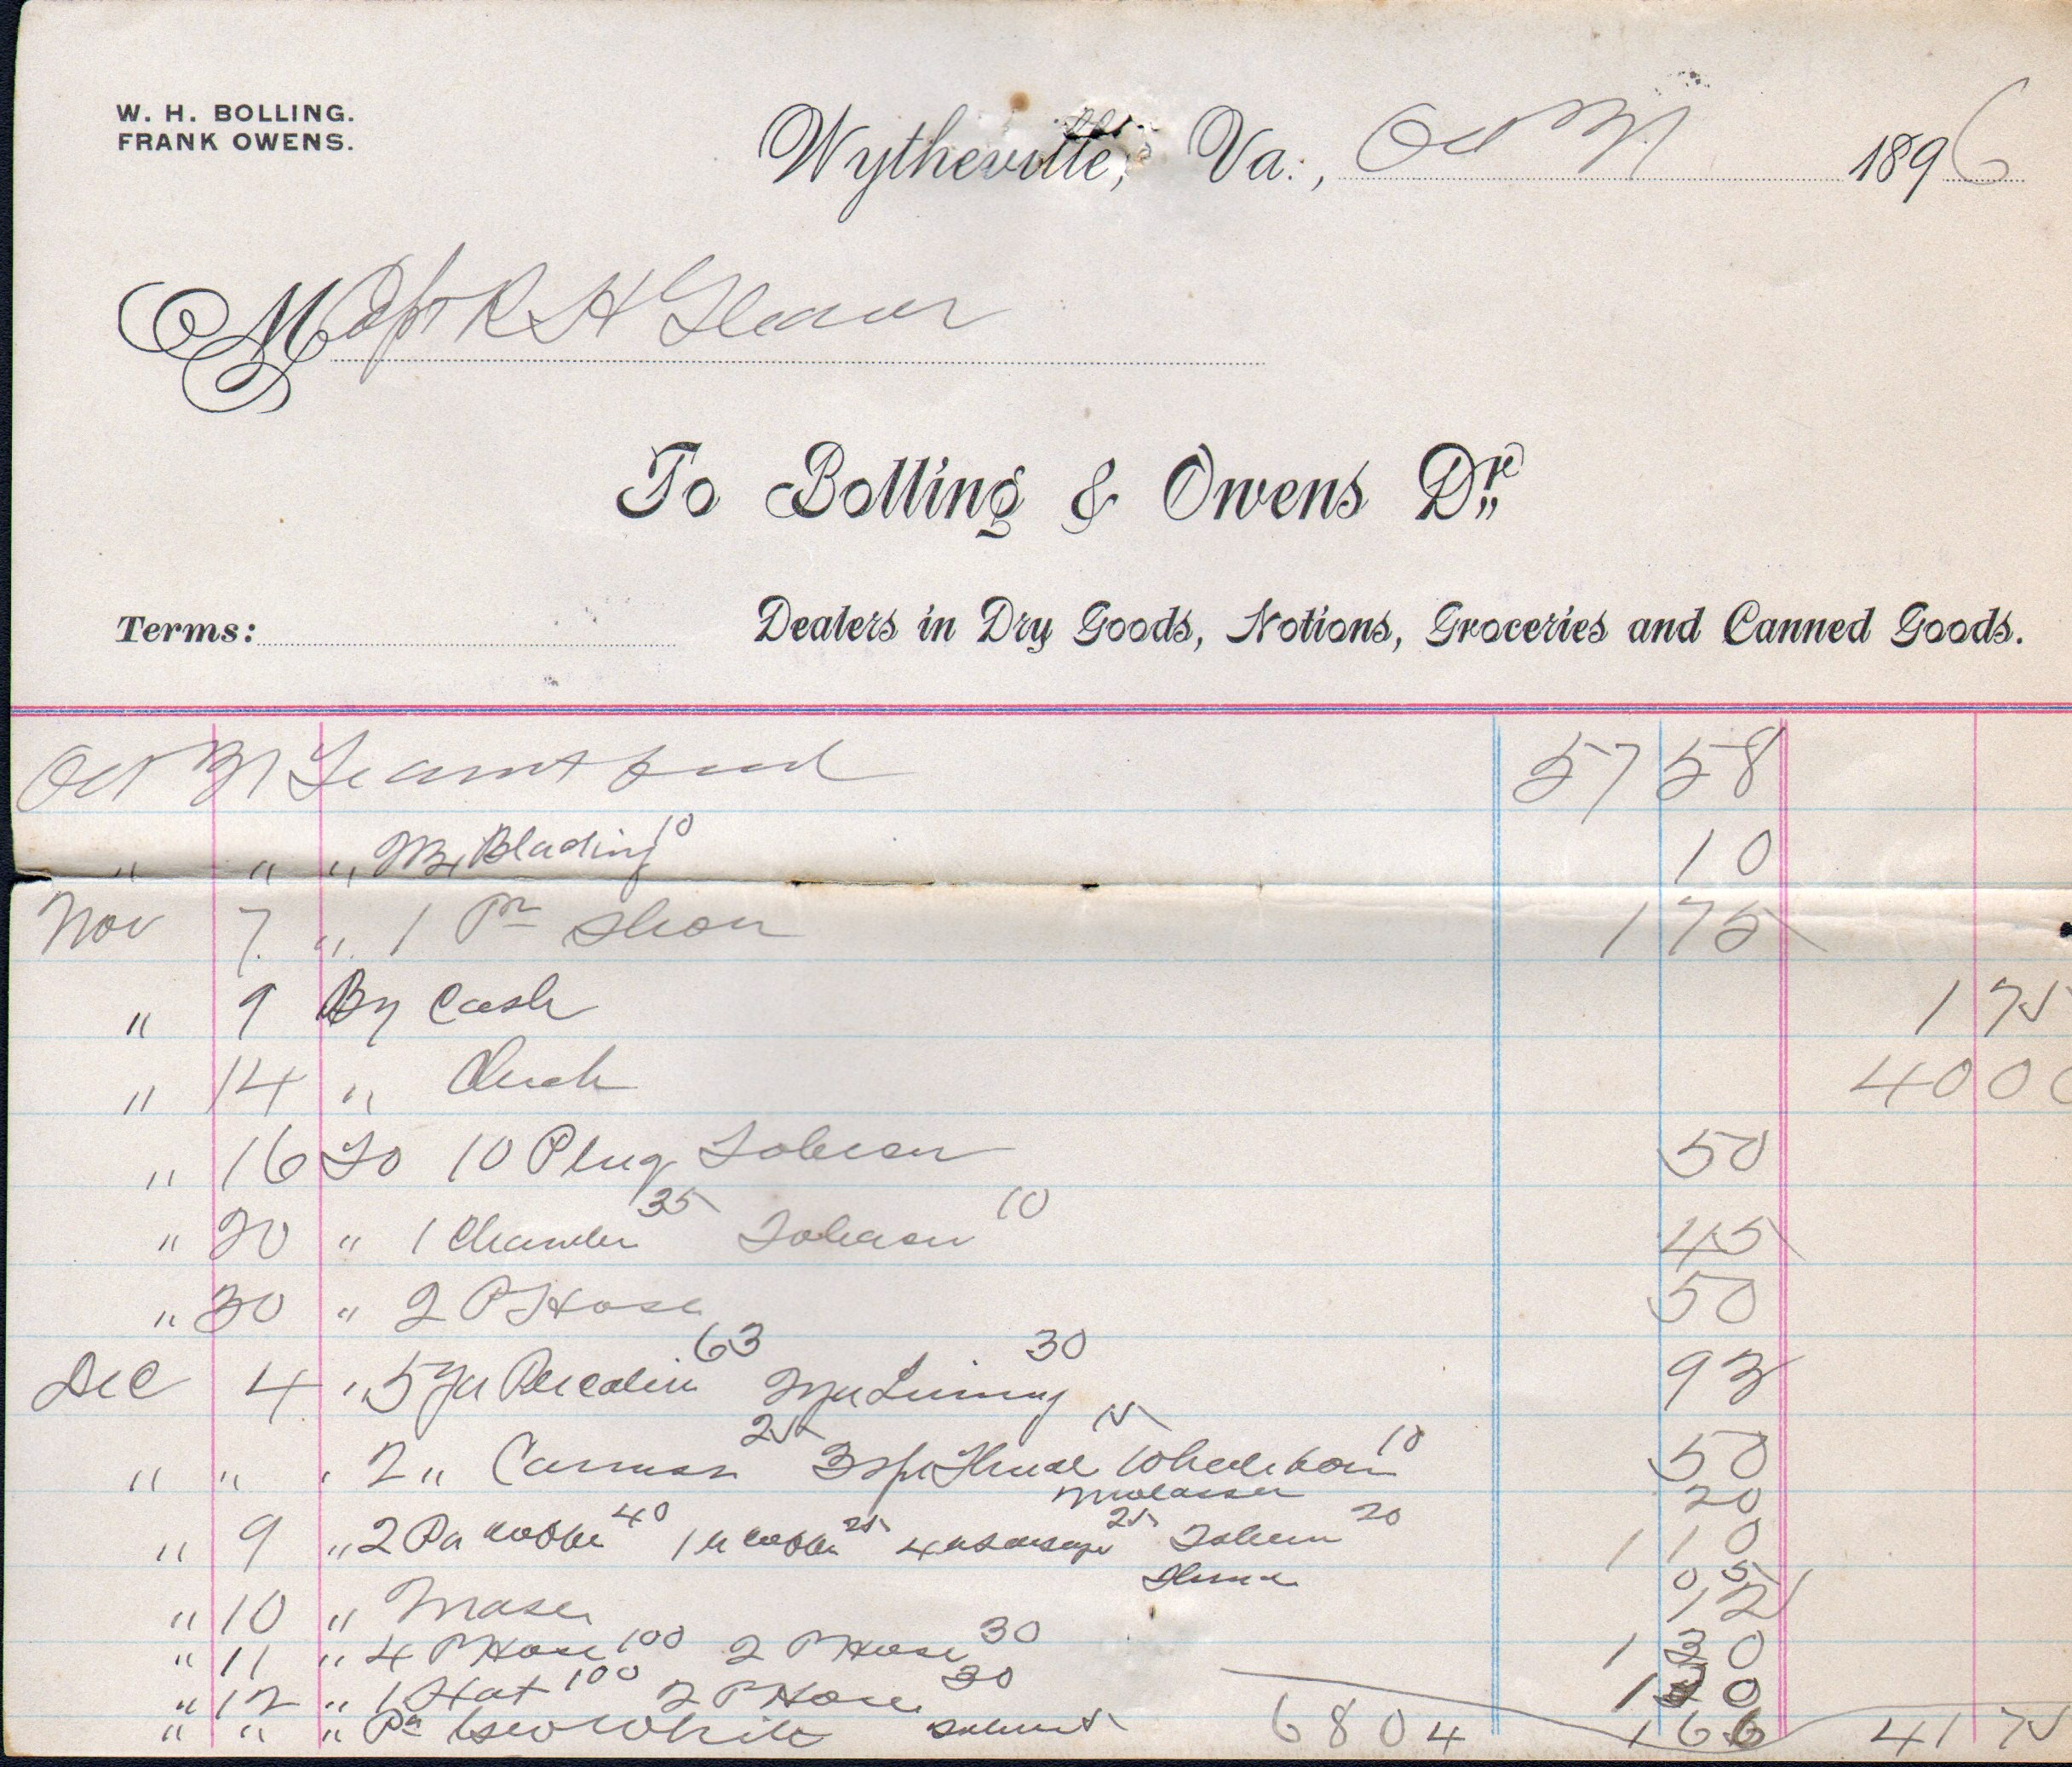 W. H. BOLLING.
FRANK OWENS.
Wytheville, Va., Oct 31 1896
M Capt R H Gleaver
To Bolling & Owens Dr.
Terms:
Dealers in Dry Goods, Notions, Groceries and Canned Goods.
Oct 31 To amt 57 58
" " " 10 10
Nov 7 " 1 Pr Shoes 1 75
" 9 By Cash 1 75
" 14 " Check 40 00
" 16 To 10 Plug Tobacco 50
" 20 " 1 Chamber 35 Tobacco 10 45
" 30 " 2 P Hose 50
Dec 4 " 5 Yds 63 Lining 30 93
" " " 2 " 25 3 sp Thread 15 Whalebone 10 50
Molasses 20
" 9 " 2 Pa 40 1 25 4 25 Tobacco 20 1 10
05
" 10 " 12
" 11 " 4 P Hose 100 2 P Hose 30 1 30
" 12 " 1 Hat 100 2 P Hose 30 1 30
" " " Pr White 68 04 1 66 41 75